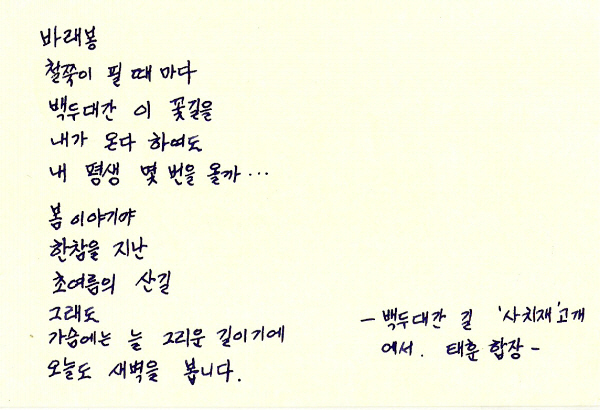 바래봉
철쭉이 필 때 마다
백두대간 이 꽃길을
내가 온다 하여도
내 평생 몇 번을 올까…
봄 이야기야
한참을 지난
초여름의 산길
그래도
가슴에는 늘 그리운 길이기에
오늘도 새벽을 봅니다.
- 백두대간 길 '사치재'고개
에서. 태훈 합장 -